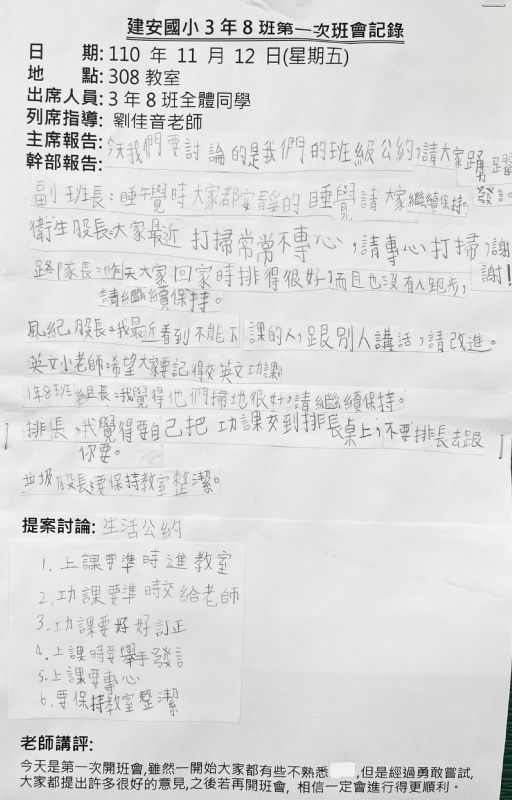 建安國小3年8班第一次班會記錄
日 期: 110 年 11 月 12 日(星期五)
地 點: 308 教室
出席人員: 3 年 8 班全體同學
列席指導: 劉佳音老師
主席報告: 今天我們要討論的是我們的班級公約,請大家踴躍
幹部報告: 發言。
副班長:睡覺時大家都安靜的睡覺請大家繼續保持。
衛生股長:大家最近打掃常常不專心,請專心打掃,謝
謝!
路隊長:昨天大家回家時排得很好,而且也沒有人跑步,
請繼續保持。
風紀股長:我最近看到不能下課的人,跟別人講話,請改進。
英文小老師:希望大家要記得交英文功課
1年8班組長:我覺得他們掃地很好,請繼續保持。
排長:我覺得要自己把功課交到排長桌上,不要排長去跟
你要。
垃圾股長:要保持教室整潔。
提案討論: 生活公約
1. 上課要準時進教室
2. 功課要準時交給老師
3. 功課要好好訂正
4. 上課時要舉手發言
5. 上課要專心
6. 要保持教室整潔
老師講評:
今天是第一次開班會,雖然一開始大家都有些不熟悉 ,但是經過勇敢嘗試,
大家都提出許多很好的意見,之後若再開班會, 相信一定會進行得更順利。